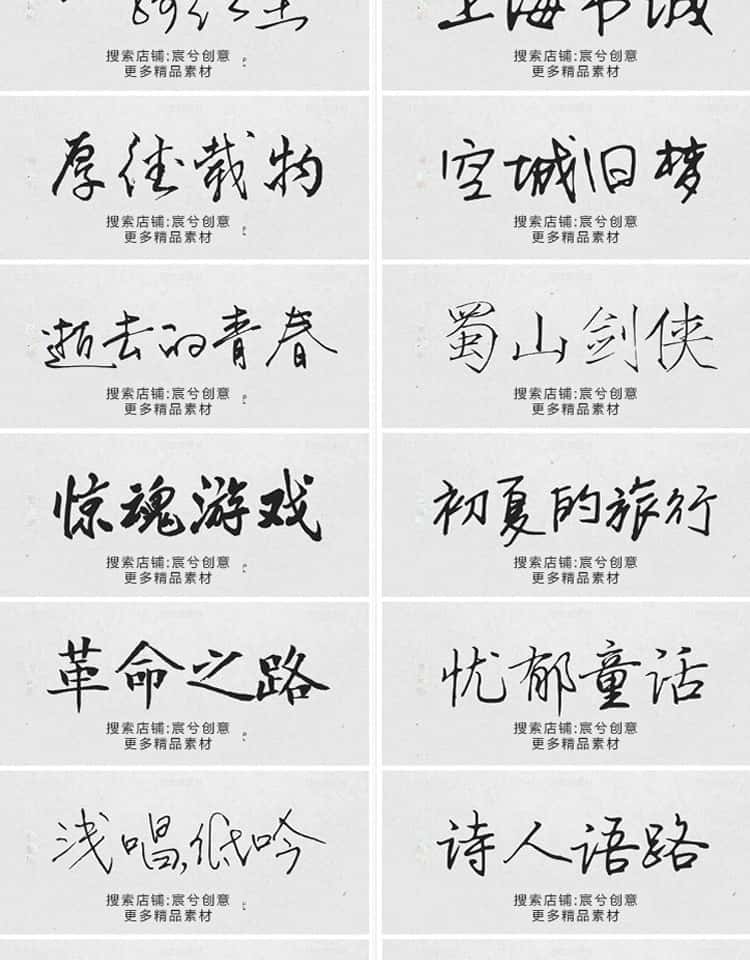 上海书城
搜索店铺:宸兮创意
更多精品素材
搜索店铺:宸兮创意
更多精品素材
厚德载物
搜索店铺:宸兮创意
更多精品素材
空城旧梦
搜索店铺:宸兮创意
更多精品素材
逝去的青春
搜索店铺:宸兮创意
更多精品素材
蜀山剑侠
搜索店铺:宸兮创意
更多精品素材
惊魂游戏
搜索店铺:宸兮创意
更多精品素材
初夏的旅行
搜索店铺:宸兮创意
更多精品素材
革命之路
搜索店铺:宸兮创意
更多精品素材
忧郁童话
搜索店铺:宸兮创意
更多精品素材
浅唱,低吟
搜索店铺:宸兮创意
更多精品素材
诗人语路
搜索店铺:宸兮创意
更多精品素材